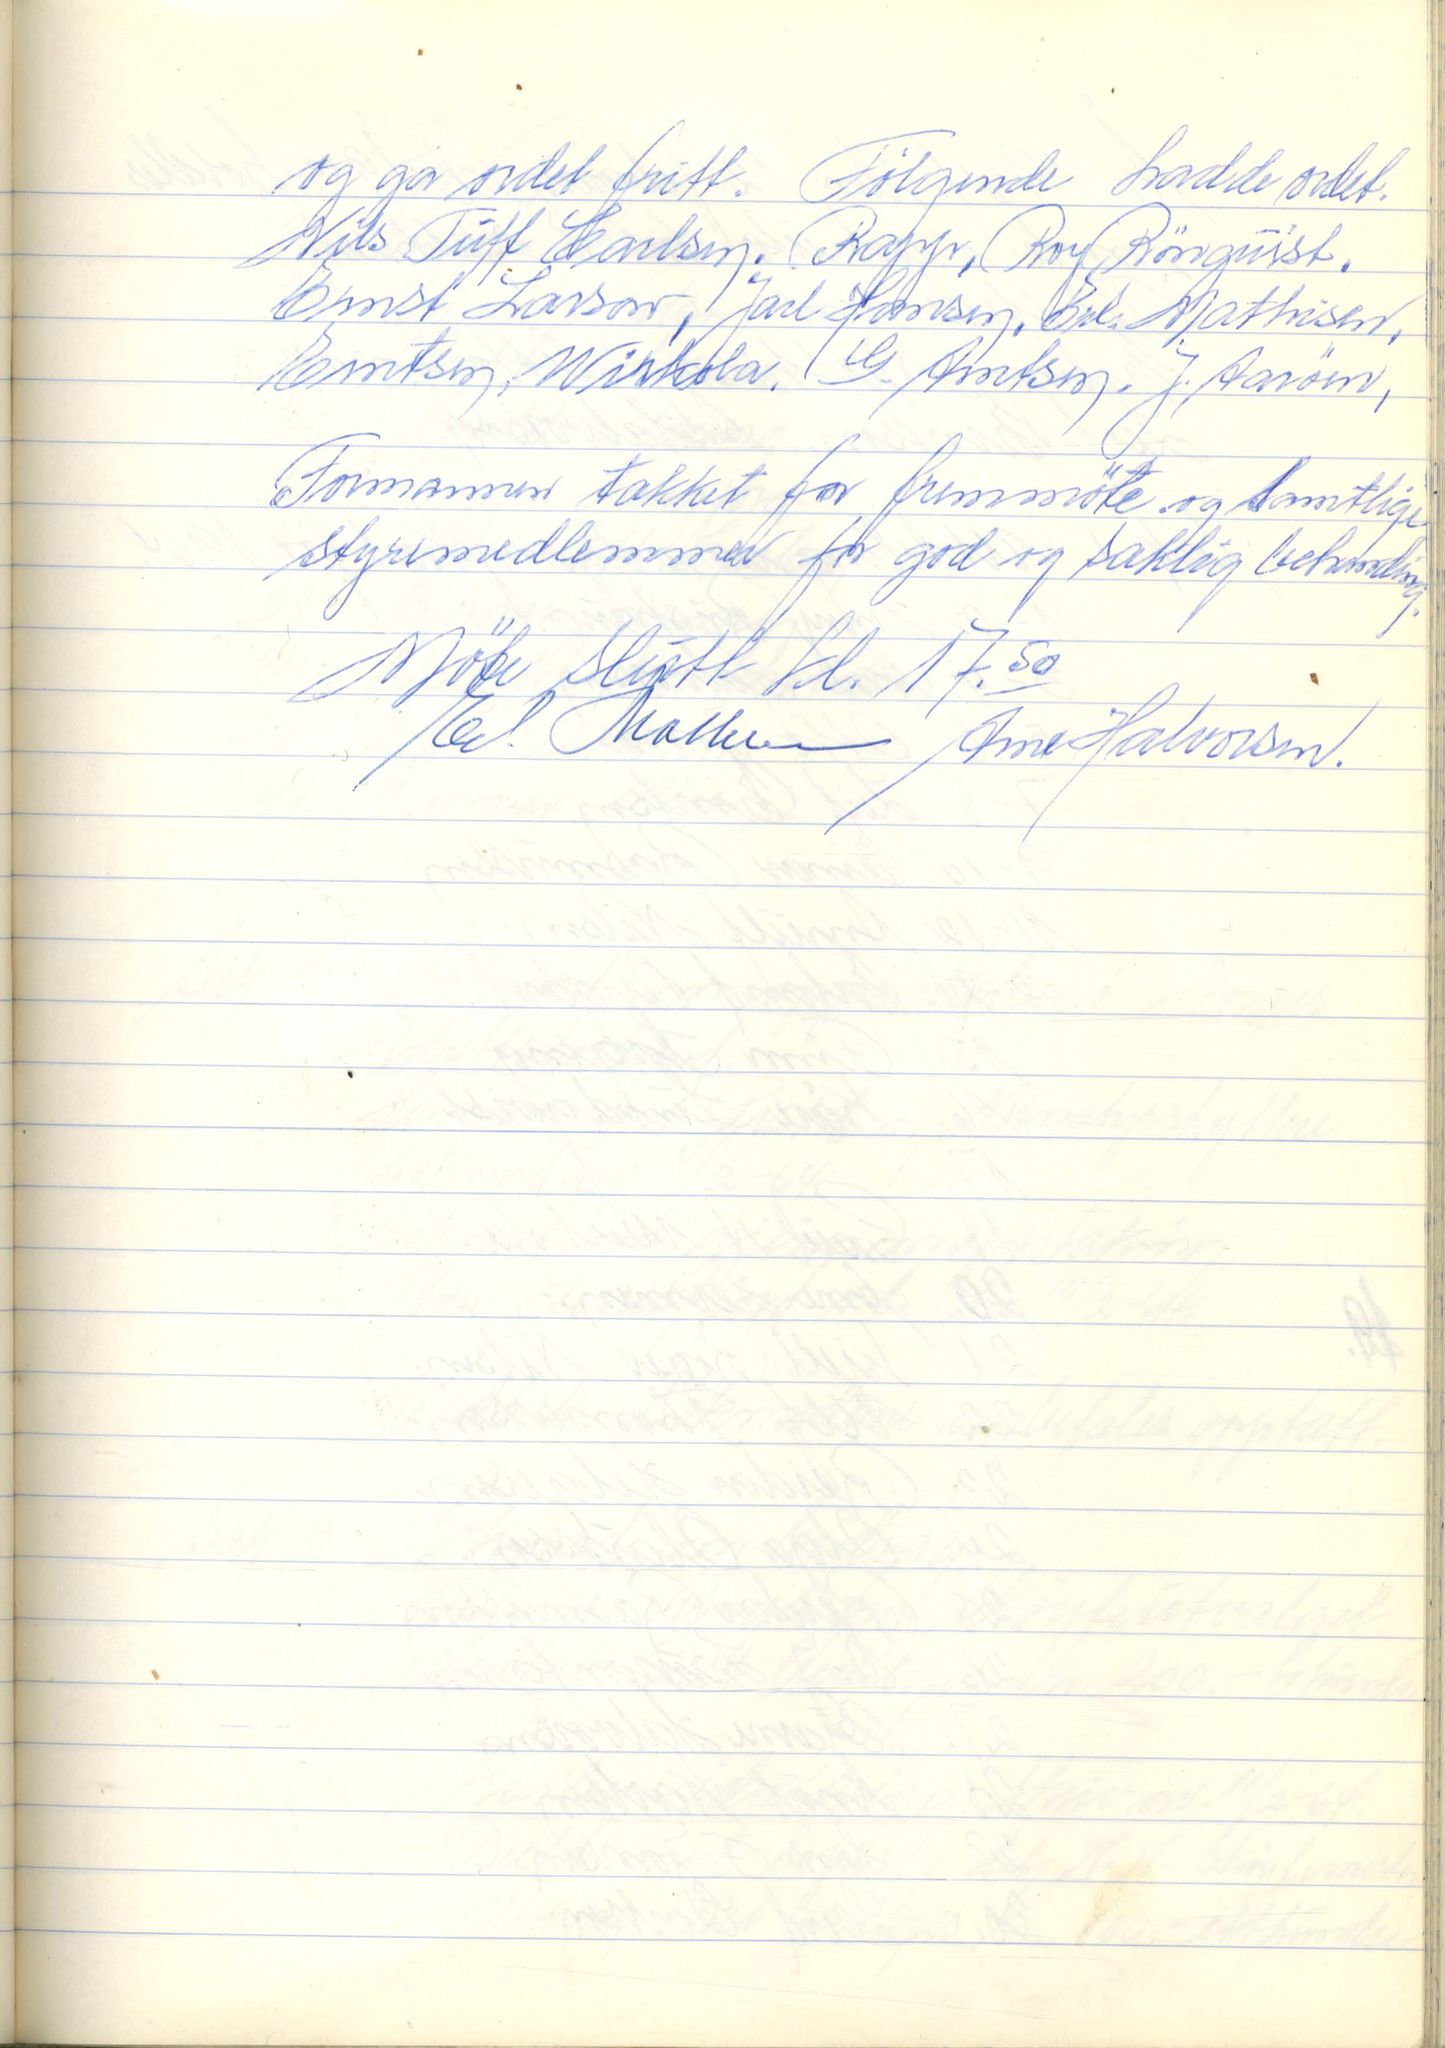 og ga ordet fritt. Følgende hadde ordet.
Nils Tuff Carlsen. Rapp, Roy Rönquist.
Ernst Larsen, Jarl Hansen, Erl. Mathisen,
Erntsen, Wirkola. G. Arntsen. J. Aarøen,
Formannen takket for fremmöte og samtlige
styremedlemmer for god og saklig behandling.
Möte slutt kl. 17.50
Erl. Mathisen Arne Halvorsen.